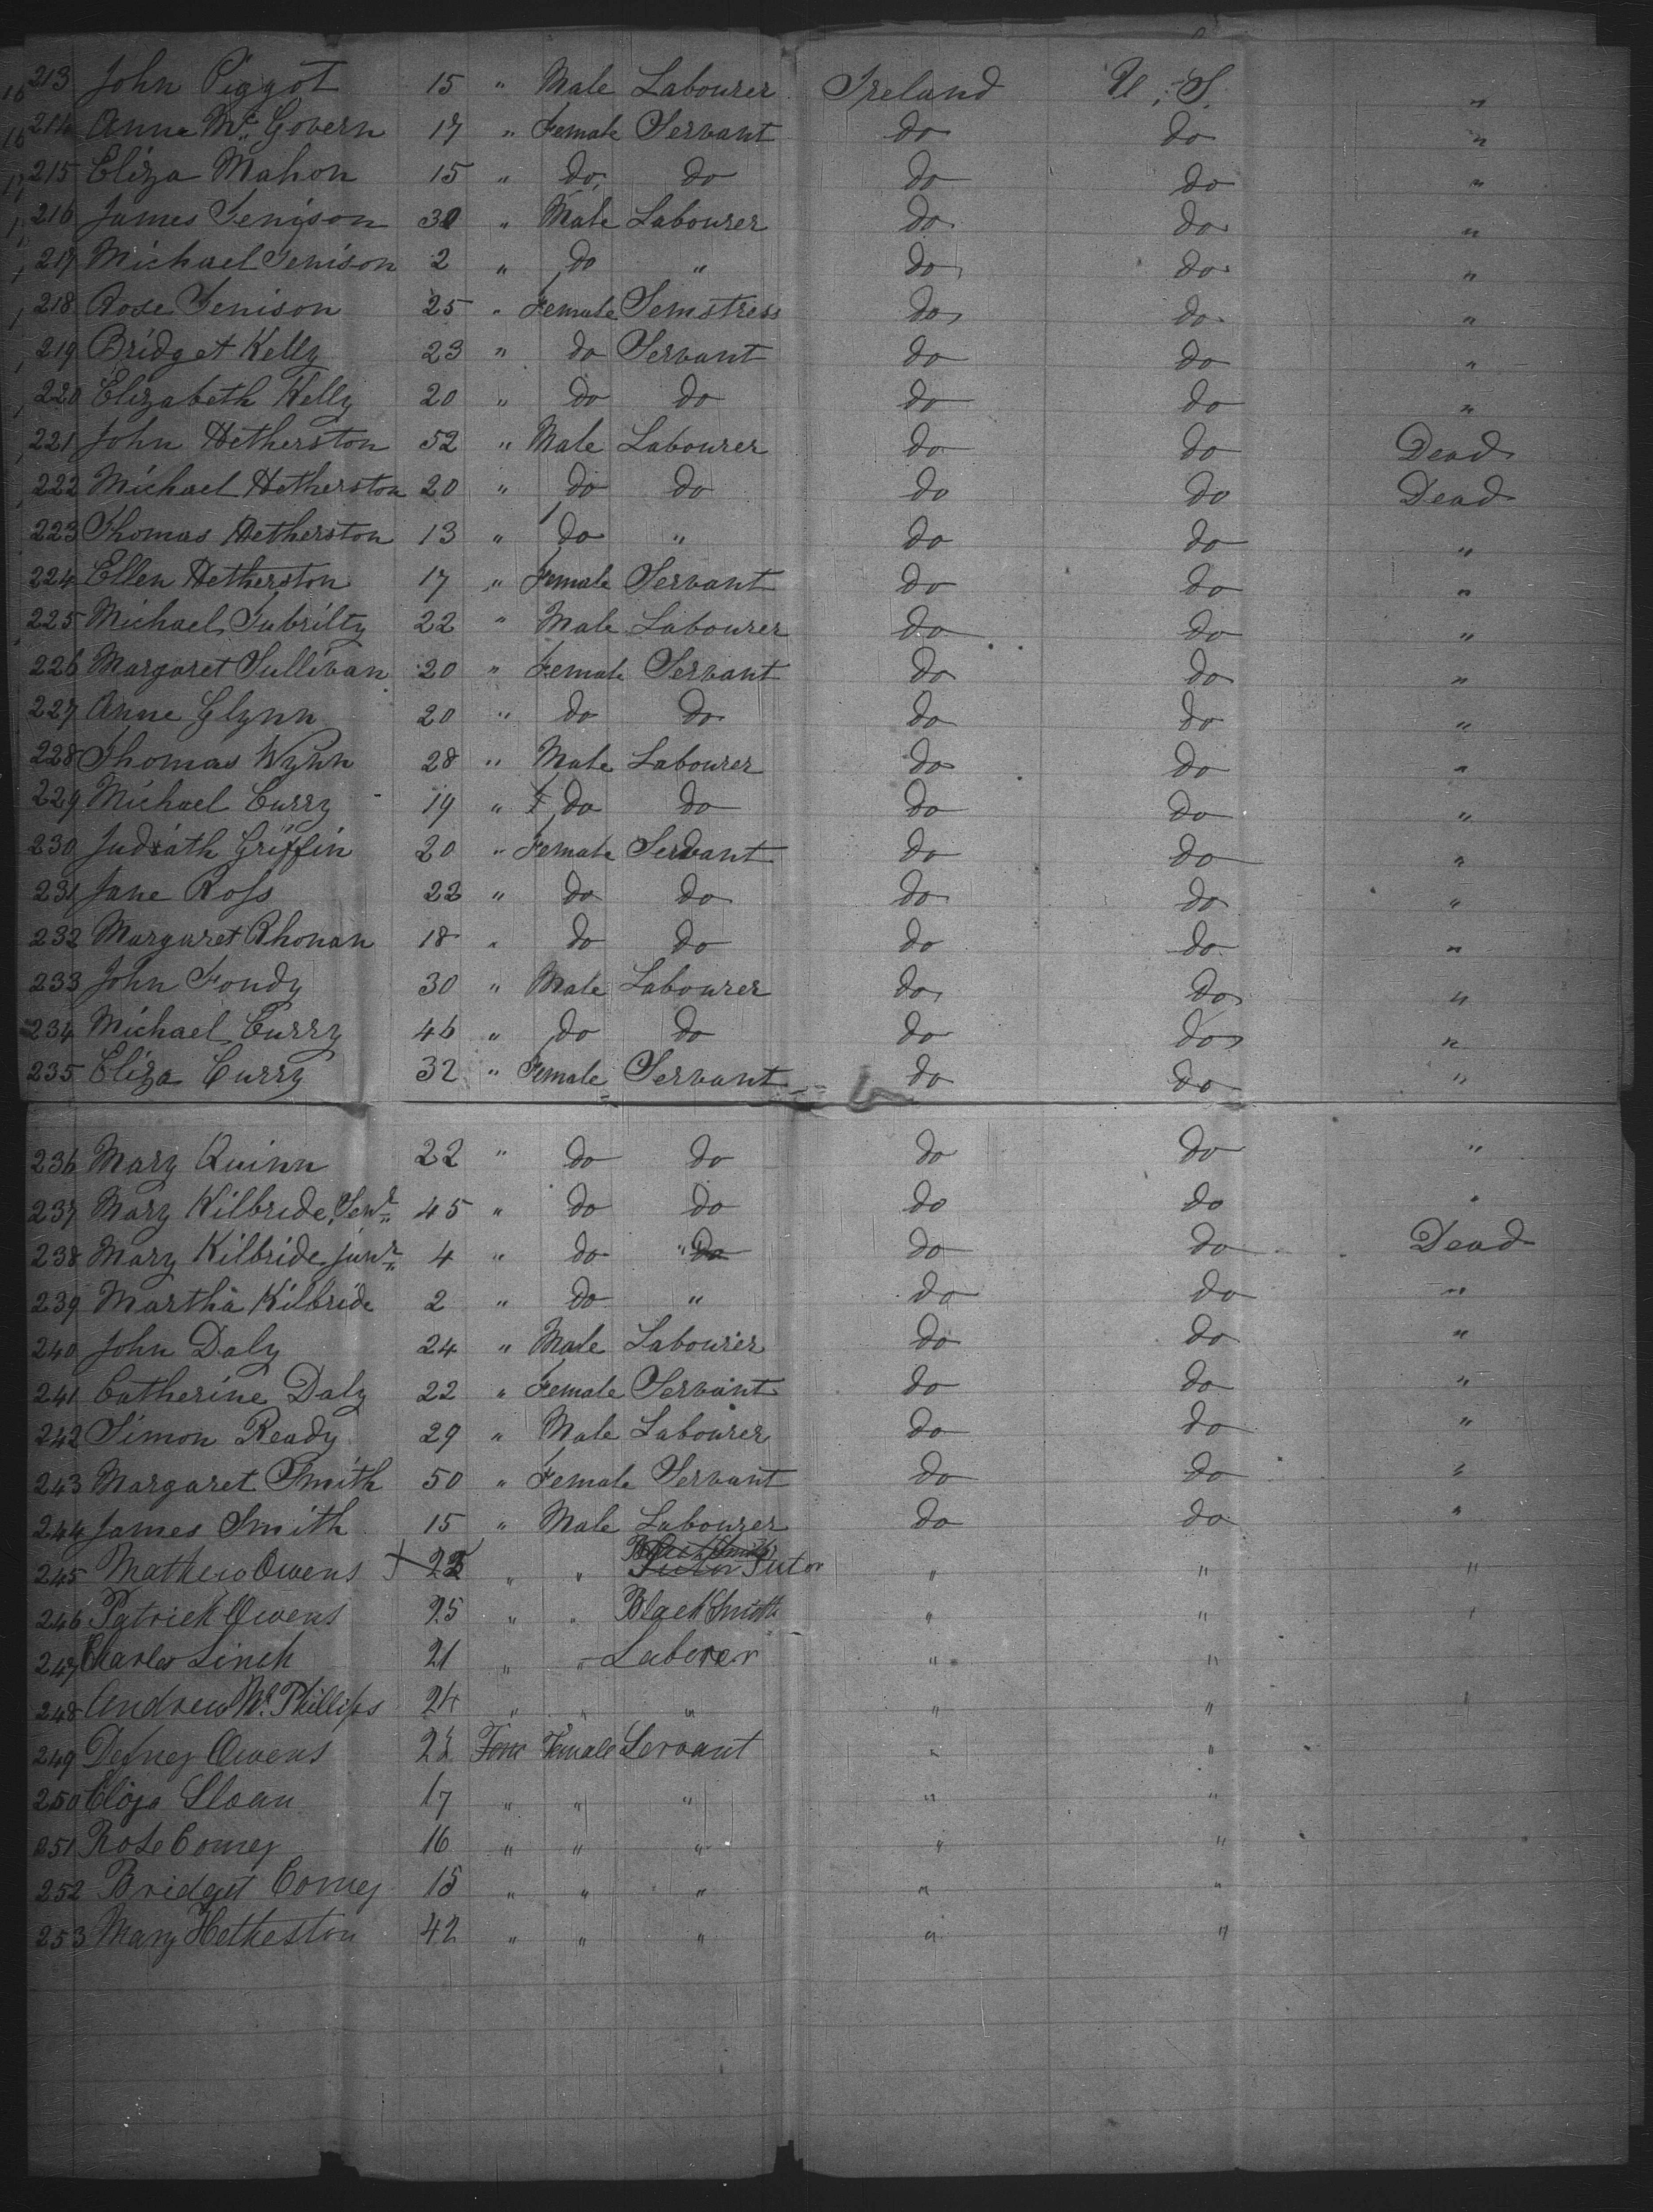 213 John Piggot 15 " Male Labourer Ireland U. S. "
214 Anne Mc Govern 17 " Female Servant do do "
215 Eliza Mahon 15 " do do do do "
216 James Tenison 30 " Male Labourer do do "
217 Michael Tenison 2 " do " do do "
218 Rose Tenison 25 " Female Semstress do do "
219 Bridget Kelly 23 " do Servant do do "
220 Elizabeth Kelly 20 " do do do do "
221 John Hetherston 52 " Male Labourer do do Dead
222 Michael Hetherston 20 " do do do do Dead
223 Thomas Hetherston 13 " do " do do "
224 Ellen Hetherston 17 " Female Servant do do "
225 Michael Tubrilty 22 " Male Labourer do do "
226 Margaret Sullivan 20 " Female Servant do do "
227 Anne Glynn 20 " do do do do "
228 Thomas Wynn 28 " Male Labourer do do "
229 Michael Curry 19 " do do do do "
230 Judiath Griffin 20 " Female Servant do do "
231 Jane Ross 22 " do do do do "
232 Margaret Rhonan 18 " do do do do "
233 John Fondy 30 " Male Labourer do do "
234 Michael Curry 46 " do do do do "
235 Eliza Curry 32 " Female Servant do do "
236 Mary Quinn 22 " do do do do "
237 Mary Kilbride, Senr 45 " do do do do "
238 Mary Kilbride junr 4 " do " do do do Dead
239 Martha Kilbride 2 " do " do do "
240 John Daly 24 " Male Labourer do do "
241 Catherine Daly 22 " Female Servant do do "
242 Simon Ready 29 " Male Labourer do do "
243 Margaret Smith 50 " Female Servant do do "
244 James Smith 15 " Male Labourer do do "
BlackSmith
245 Mathew Owens 22 " " Tutor Tutor " " "
246 Patrick Owens 25 " " BlackSmith " " "
247 Charles Linch 21 " " Laborer " "
248 Andrew Mc Phillips 24 " " " " " "
249 Defney Owens 28 Fem Female Servant " "
250 Eliza Sloan 17 " " " " "
251 Rose Comey 16 " " " " "
252 Bridget Comey 15 " " " " "
253 Mary Hetheston 42 " " " " "